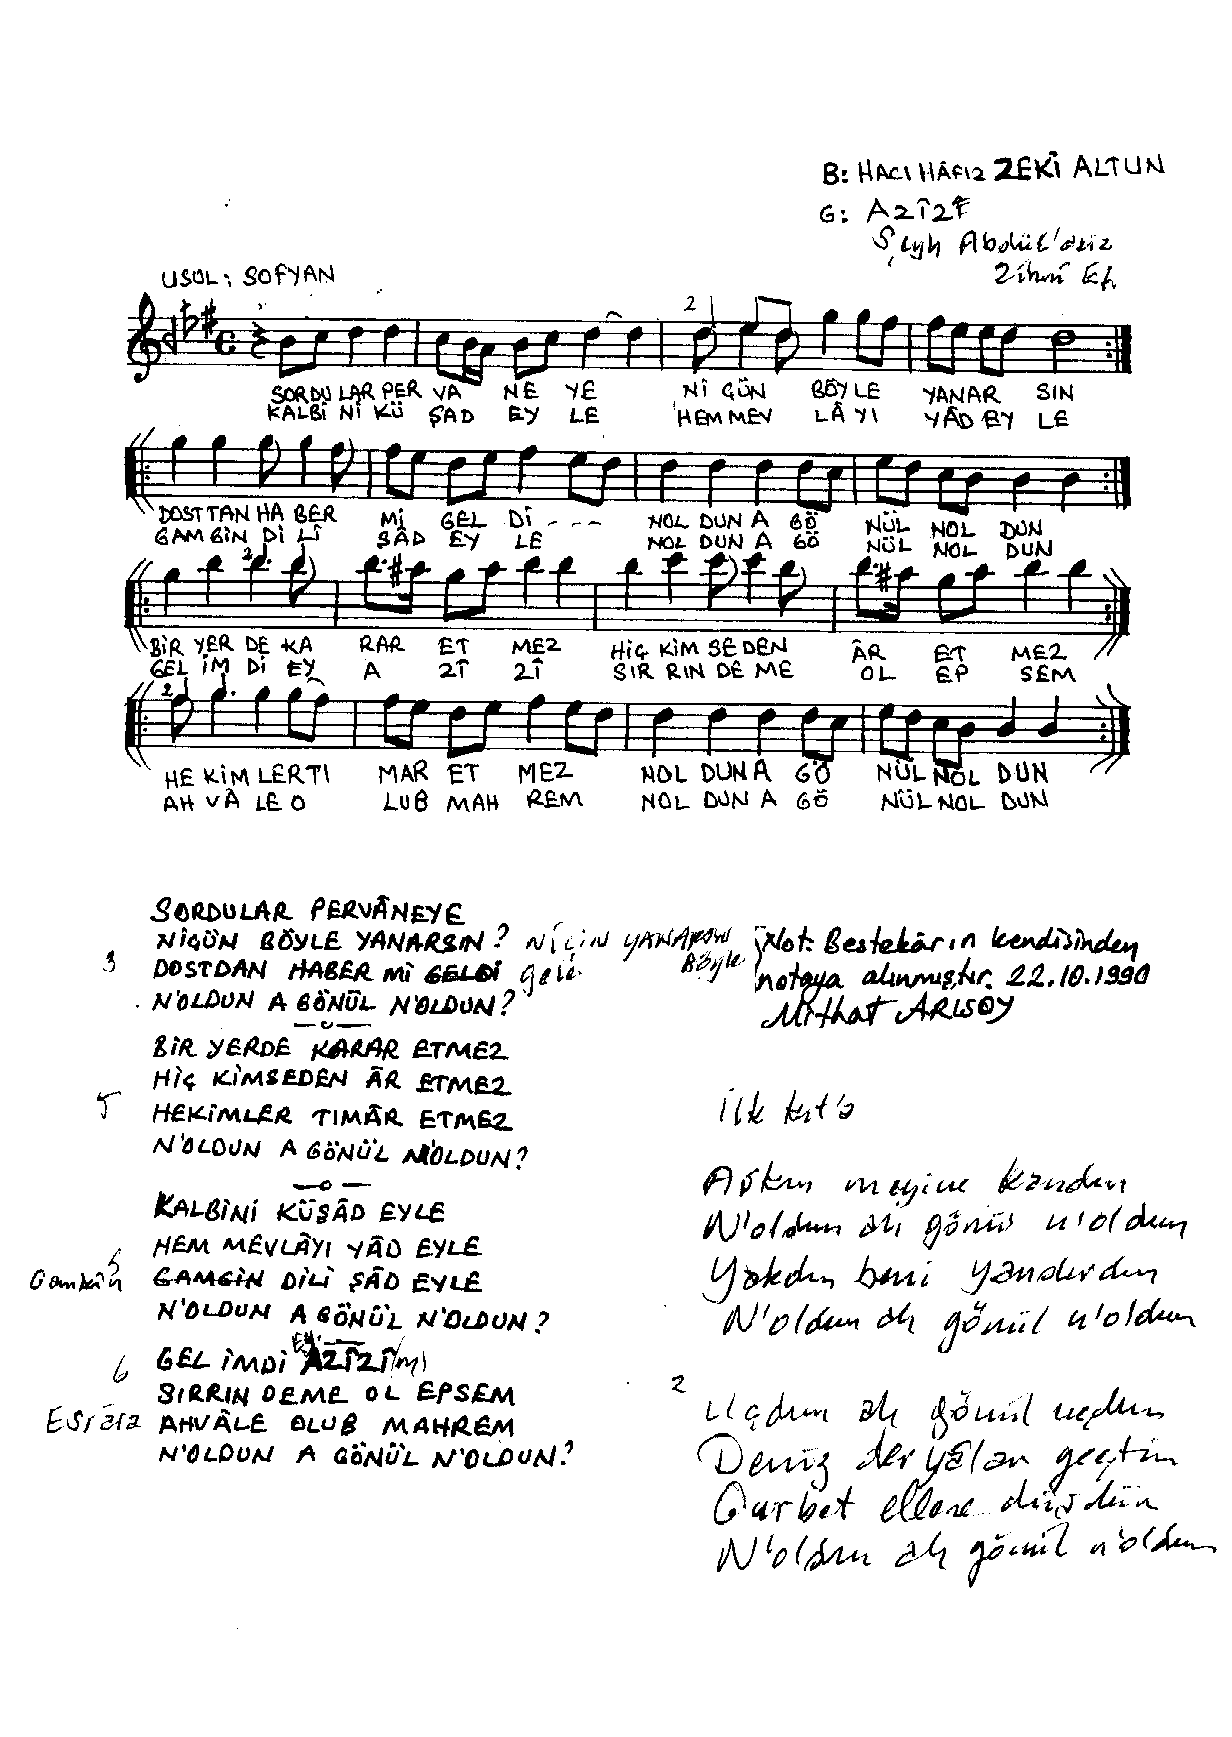 B: HACI HÂFIZ ZEKİ ALTUN
G: AZÎZÎ
Şeyh Abdül'aziz
Zihni Ef.
USÛL: SOFYAN
SORDULAR PER VA NE YE Nİ GÜN BÖYLE YANAR SIN
KALBİ Nİ KÜ ŞAD EY LE HEM MEV LÂ YI YÂD EY LE
DOSTTAN HA BER Mİ GEL Dİ - - - NOL DUN A GÖ NÜL NOL DUN
GAM GİN Dİ Lİ ŞÂD EY LE NOL DUN A GÖ NÜL NOL DUN
BİR YER DE KA RAR ET MEZ HİÇ KİM SE DEN ÂR ET MEZ
GEL İM Dİ EY A ZÎ ZÎ SIR RIN DE ME OL EP SEM
HE KİM LER TI MAR ET MEZ NOL DUN A GÖ NÜL NOL DUN
AH VÂ LE O LUB MAH REM NOL DUN A GÖ NÜL NOL DUN
SORDULAR PERVÂNEYE
NİGÜN BÖYLE YANARSIN? NİÇİN YANARSIN Böyle
3 DOSTDAN HABER Mİ GELDİ
N'OLDUN A GÖNÜL N'OLDUN?
BİR YERDE KARAR ETMEZ
HİÇ KİMSEDEN ÂR ETMEZ
5 HEKİMLER TIMÂR ETMEZ
N'OLDUN A GÖNÜL N'OLDUN?
KALBİNİ KÜŞÂD EYLE
HEM MEVLÂYI YÂD EYLE
GAMGİN DİLİ ŞÂD EYLE
N'OLDUN A GÖNÜL N'OLDUN?
6 GEL İMDİ EY AZÎZÎ(m)
SIRRIN DEME OL EPSEM
Esrâra AHVÂLE OLUB MAHREM
N'OLDUN A GÖNÜL N'OLDUN?
Not: Bestekârın kendisinden
notaya alınmıştır. 22.10.1990
Mithat ARISOY
İlk kıt'a
Aşkın meyine kandın
N'oldun ah gönül n'oldun
Yakdın beni yandırdın
N'oldun ah gönül n'oldun
2 Uçdun ah gönül uçdun
Deniz deryâlar geçtin
Gurbet ellere düşdün
N'oldun ah gönül n'oldun